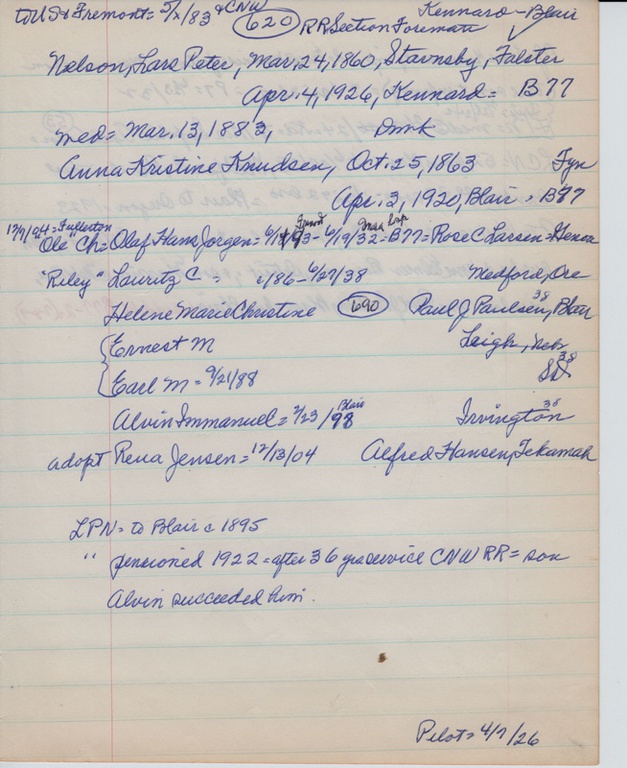 to US & Fremont = 5/x/83 & CNW (620) Kennard - Blair
RR Section Foreman
Nelson, Lars Peter, Mar. 24, 1860, Stavnsby, Falster
Apr. 4, 1926, Kennard = B77
med = Mar. 13, 1883, Dmk
Anna Kristine Knudsen, Oct. 25, 1863 Fyn
Apr. 3, 1920, Blair = B77
12/7/94 = Fullerton
"Ole" Ch = Olaf Hans Jorgen = 6/19/32 = B77 = Rose C Larsen =
"Riley" Lauritz C = c/86 - 6/27/38 Medford, Ore
Helene Marie Christine (690) Paul J Paulsen, 38 Blair
Ernest M Leigh, Nebr
Earl M = 9/21/88 SD 38
Alvin Immanuel = 2/23/98 Blair Irvington 38
adopt Rena Jensen = 12/13/04 Alfred Hansen, Tekamah
LPN = to Blair c 1895
" pensioned 1922 = after 36 yrs service CNW RR = son
Alvin succeeded him.
Pilot = 4/7/26